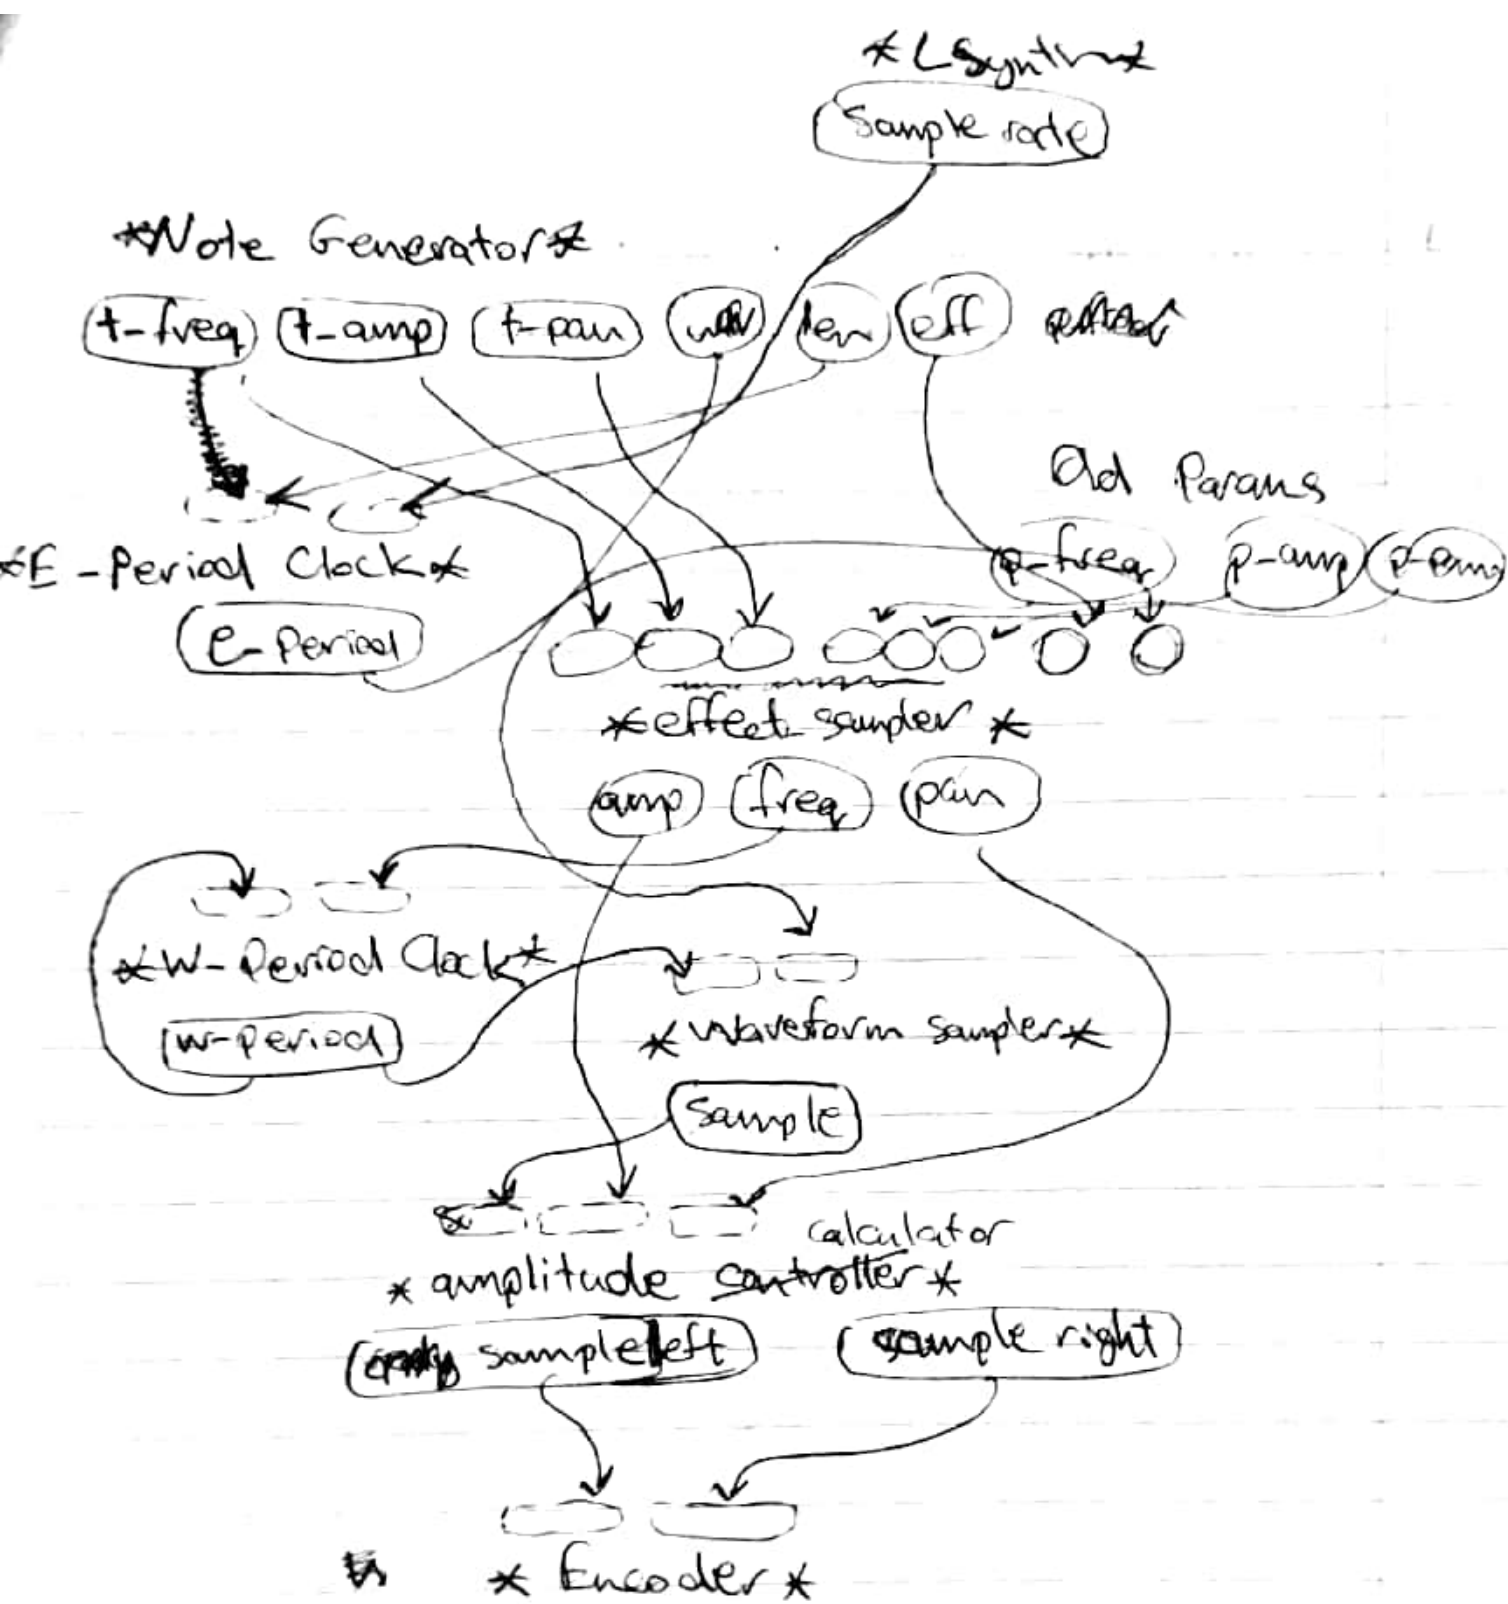 *LSynth*
Sample rate
*Note Generator*
t-freq t-amp t-pan wav len eff
Old Params
p-freq p-amp p-pan
*E-Period Clock*
e-Period
*effect sampler*
amp freq pan
*W-Period Clock*
w-period
*Waveform sampler*
Sample
calculator
*amplitude controller*
sample left sample right
*Encoder*